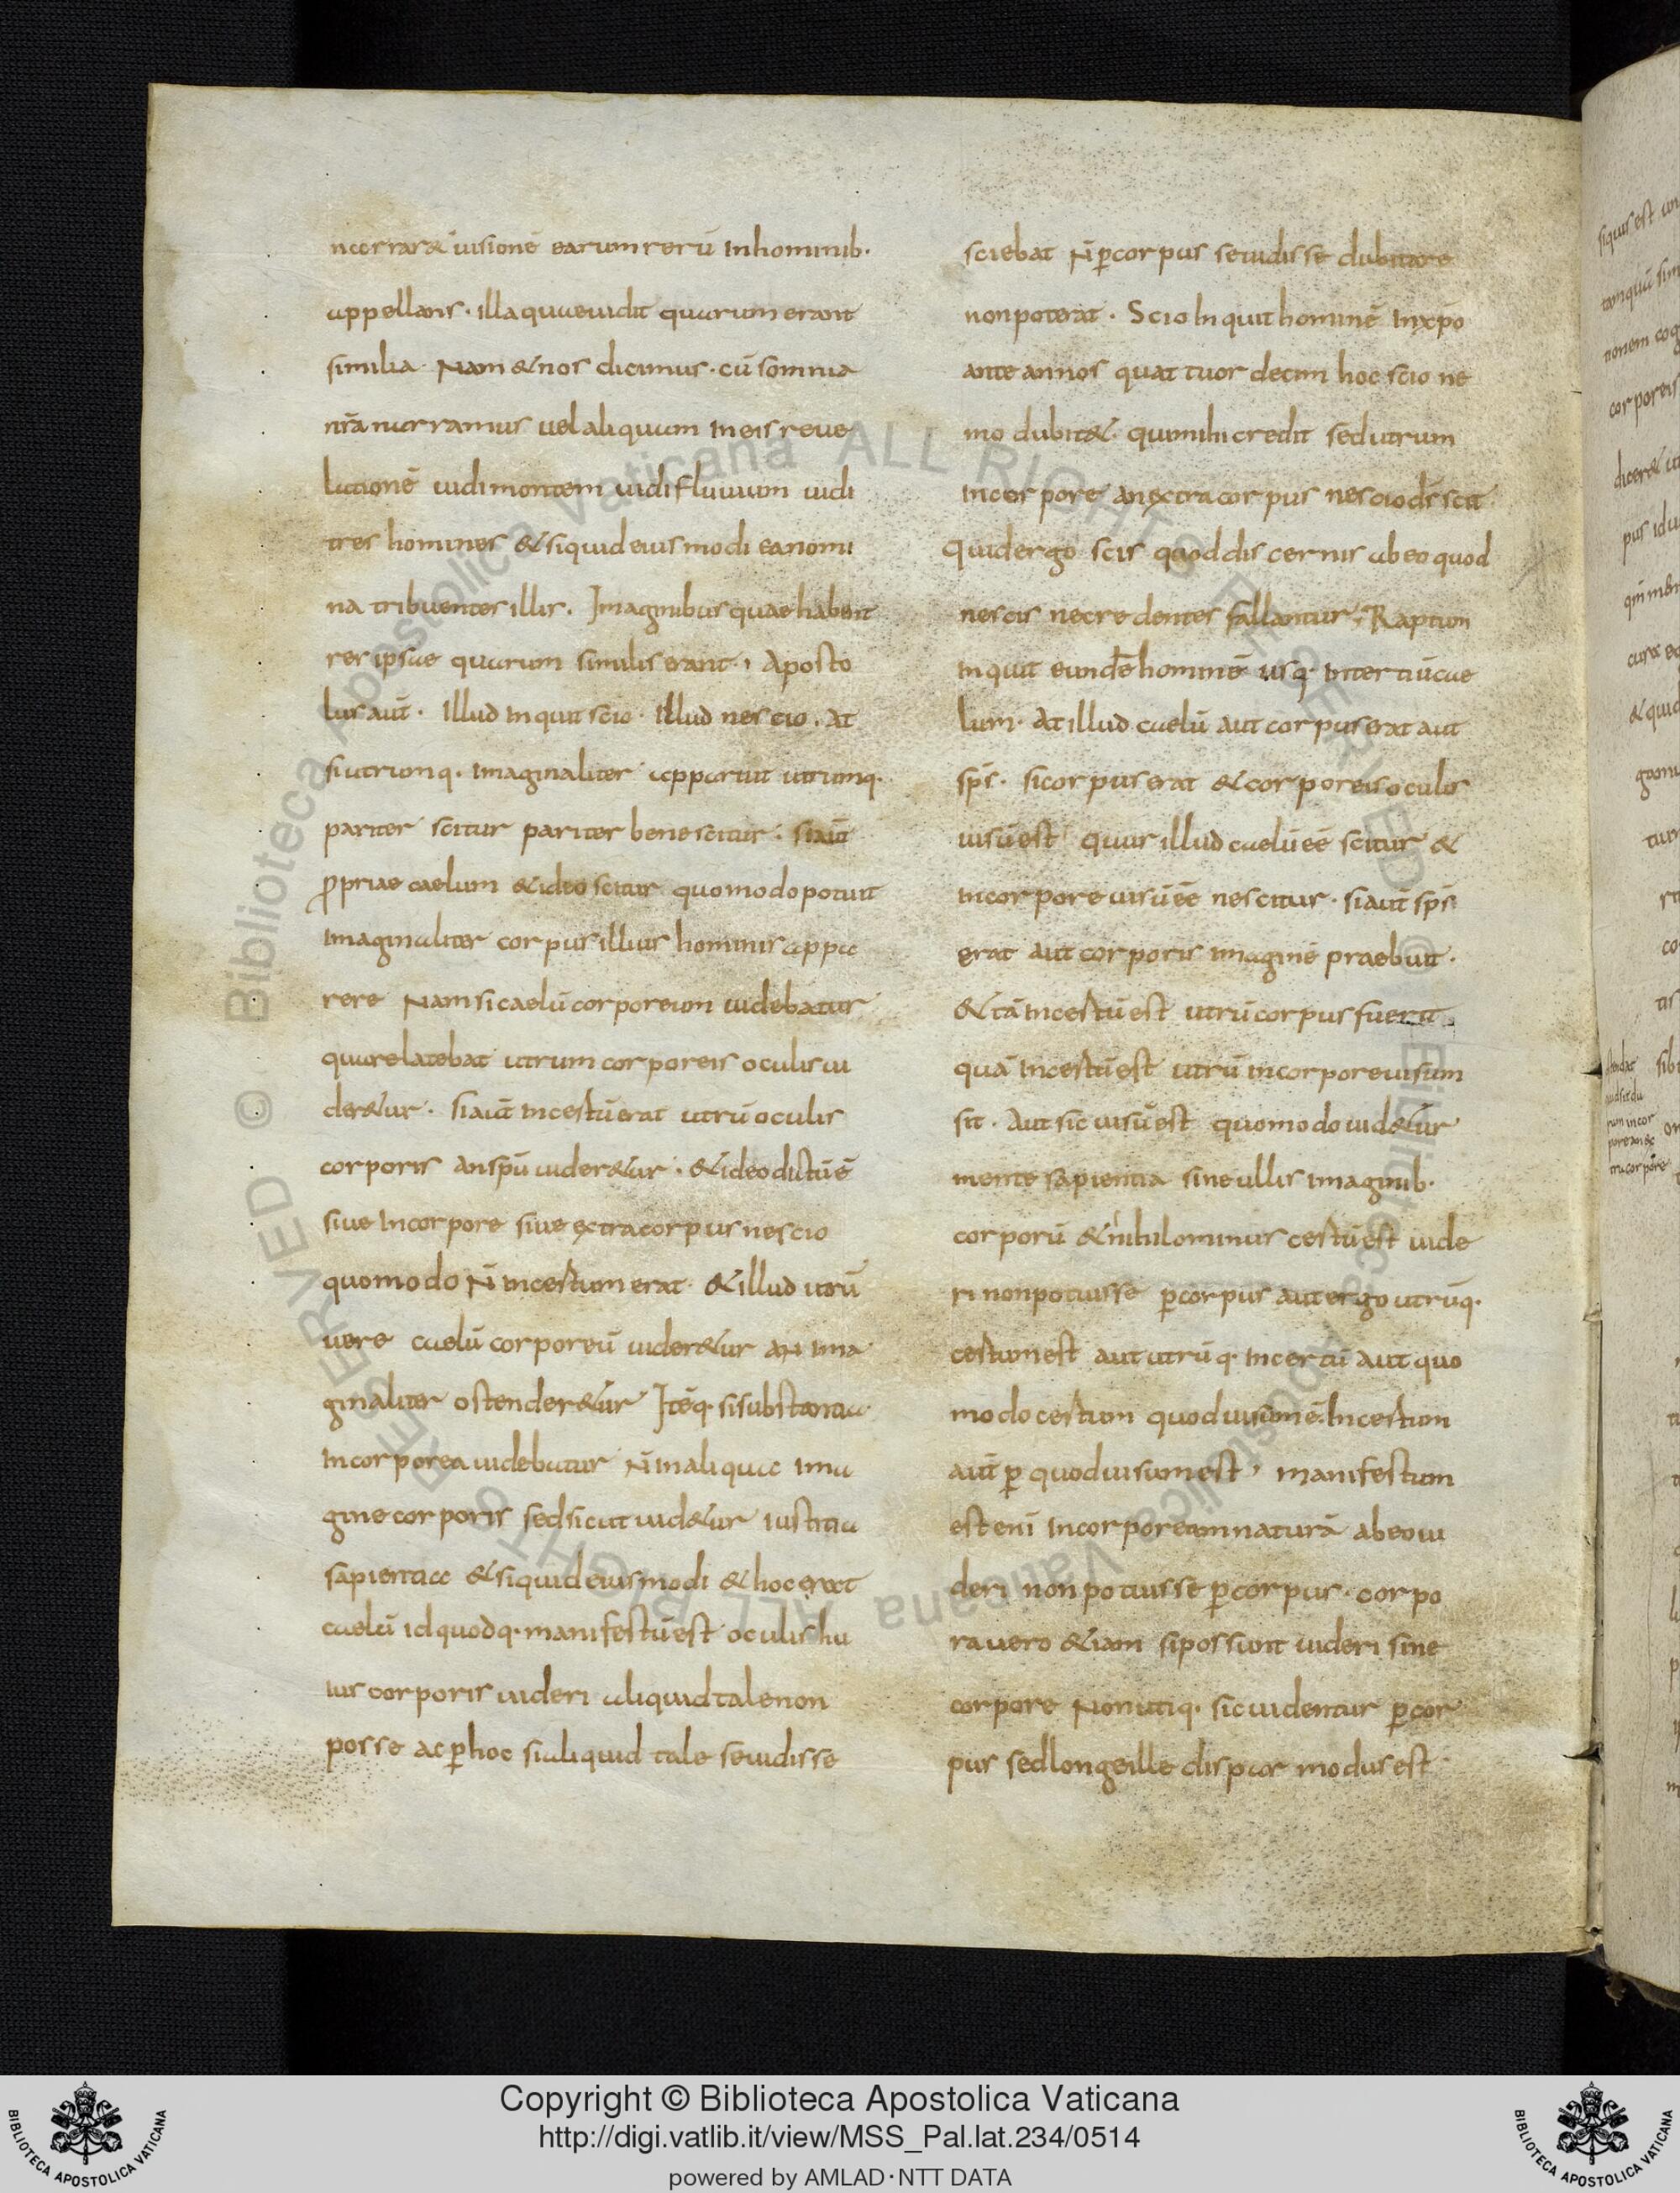 narrar& uisionē earum rerū inhominib·
appellans · illa quaeuidit quarum erant
similia · Nam & nos dicimus · cū somnia
nr̄a narramus uel aliquam in eis reue
lationē uidi montem uidi fluuium uidi
tres homines & siquid eiusmodi ea nomi
na tribuentes illis . Imaginibus quae habent
res ipsae quarum similis erant · , Aposto
lus aut̄ · Illud inquit scio · Illud nescio . At
si utrumq · imaginaliter apparuit utrumq ·
pariter scitur pariter bene scitur · si aut̄
ꝓpriae caelum & ideo scitur quomodo potuit
imaginaliter corpus illius hominis appa
rere Nam si caelū corporeum uidebatur
quare latebat utrum corporeis oculis ui
der&ur · si aut̄ incertū erat utrū oculis
corporis an sp̄u uider&ur · & ideo dictū ē
siue incorpore siue extra corpus nescio
quomodo N̄ incertum erat · & illud utrū
uere caelū corporeū uider&ur AN ima
ginaliter ostender&ur Itēq · si substantia
incorporea uidebatur N̄ in aliqua ima
gine corporis sed sicut uid&ur iustitia
sapientia & siquid eiusmodi & hoc erat
caelū id quodq · manifestū est oculis hu
ius corporis uideri aliquid tale non
posse ac ꝑ hoc si aliquid tale se uidisse
sciebat N̄ ꝑ corpus se uidisse dubitare
non poterat · Scio inquit hominē in xp̄o
ante annos quattuor decim hoc scio ne
mo dubit& qui mihi credit sed utrum
incorpore an extra corpus nescio d̄s scit
Quid ergo scis quod discernis ab eo quod
nescis ne credentes fallantur ; Raptum
inquit eundē hominē usq · in tertiū cae
lum · At illud caelū aut corpus erat aut
sp̄s · si corpus erat & corporeis oculis
uisū est quur illud caelū eē scitur &
incorpore uisū eē nescitur · si aut̄ sp̄s
erat aut corporis imaginē praebuit ·
& tā incertū est utrū corpus fuerit
quā incertū est utrū incorpore uisum
sit · Aut sic uisū est quomodo uid&ur
mente sapientia sine ullis imaginib ·
corporū & nihilominus certū est uide
ri non potuisse ꝑ corpus aut ergo utrūq ·
certum est aut utrūq · incertū aut quo
modo certum quod uisum ē · Incertum
aut̄ ꝑ quod uisum est , manifestum
est enī incorpoream naturā ab eo ui
deri non potuisse ꝑ corpus · corpo
ra uero &iam si possunt uideri sine
corpore Non utiq · sic uidentur ꝑ cor
pus sed longe ille dispar modus est
© Biblioteca Apostolica Vaticana ALL RIGHTS RESERVED
Copyright © Biblioteca Apostolica Vaticana
http://digi.vatlib.it/view/MSS_Pal.lat.234/0514
powered by AMLAD·NTT DATA
BIBLIOTECA APOSTOLICA VATICANA
BIBLIOTECA APOSTOLICA VATICANA